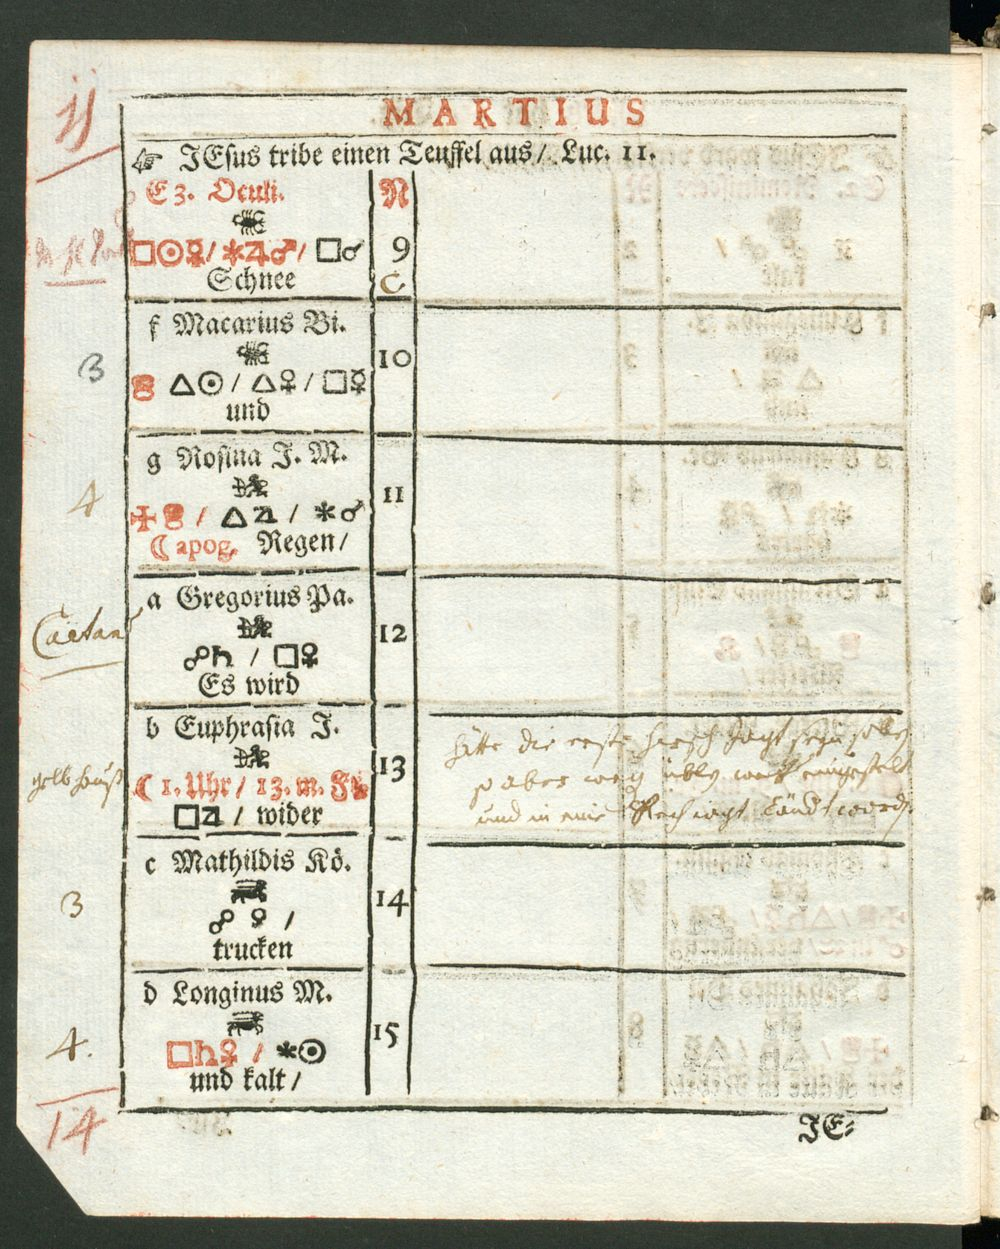 11
MARTIUS
☞ JEsus tribe einen Teuffel aus / Luc. 11.
E 3. Oculi. N
□☉☿ / ✱♃♂ / □♂ 9
Schnee C
f Macarius Bi.
3 10
△☉ / △♀ / □☿
und
g Rosina J. M.
4 11
✠ / △♃ / ✱♂
☾ apog. Regen /
a Gregorius Pa.
Caetan 12
☍♄ / □♀
Es wird
b Euphrasia J.
hätte die erste hirsch Jagt seyn
13
☾ 1. Uhr / 13. m. Fr
aber
□♃ / wider
und in eine
c Mathildis Kö.
3 14
☍ ♀ /
trucken
d Longinus M.
4. 15
□♄♀ / ✱☉
und kalt /
14
JE⸗